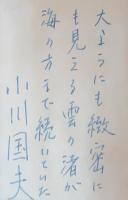 大まかにも緻密に
も見える雲の渚が
海の方まで続いていた
小川国夫